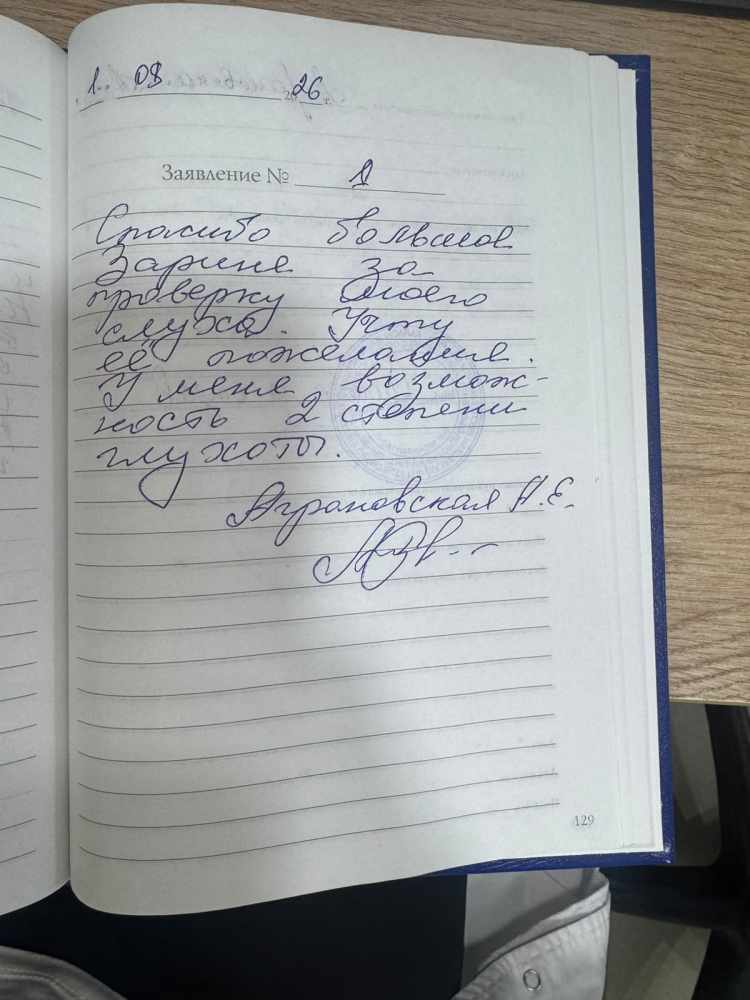 1. 08 2026
Заявление № 1
Спасибо большое
Зарине за
проверку моего
слуха. Учту
её пожелания.
У меня возмож-
ность 2 степени
глухоты.
Аграновская А.Е.
129